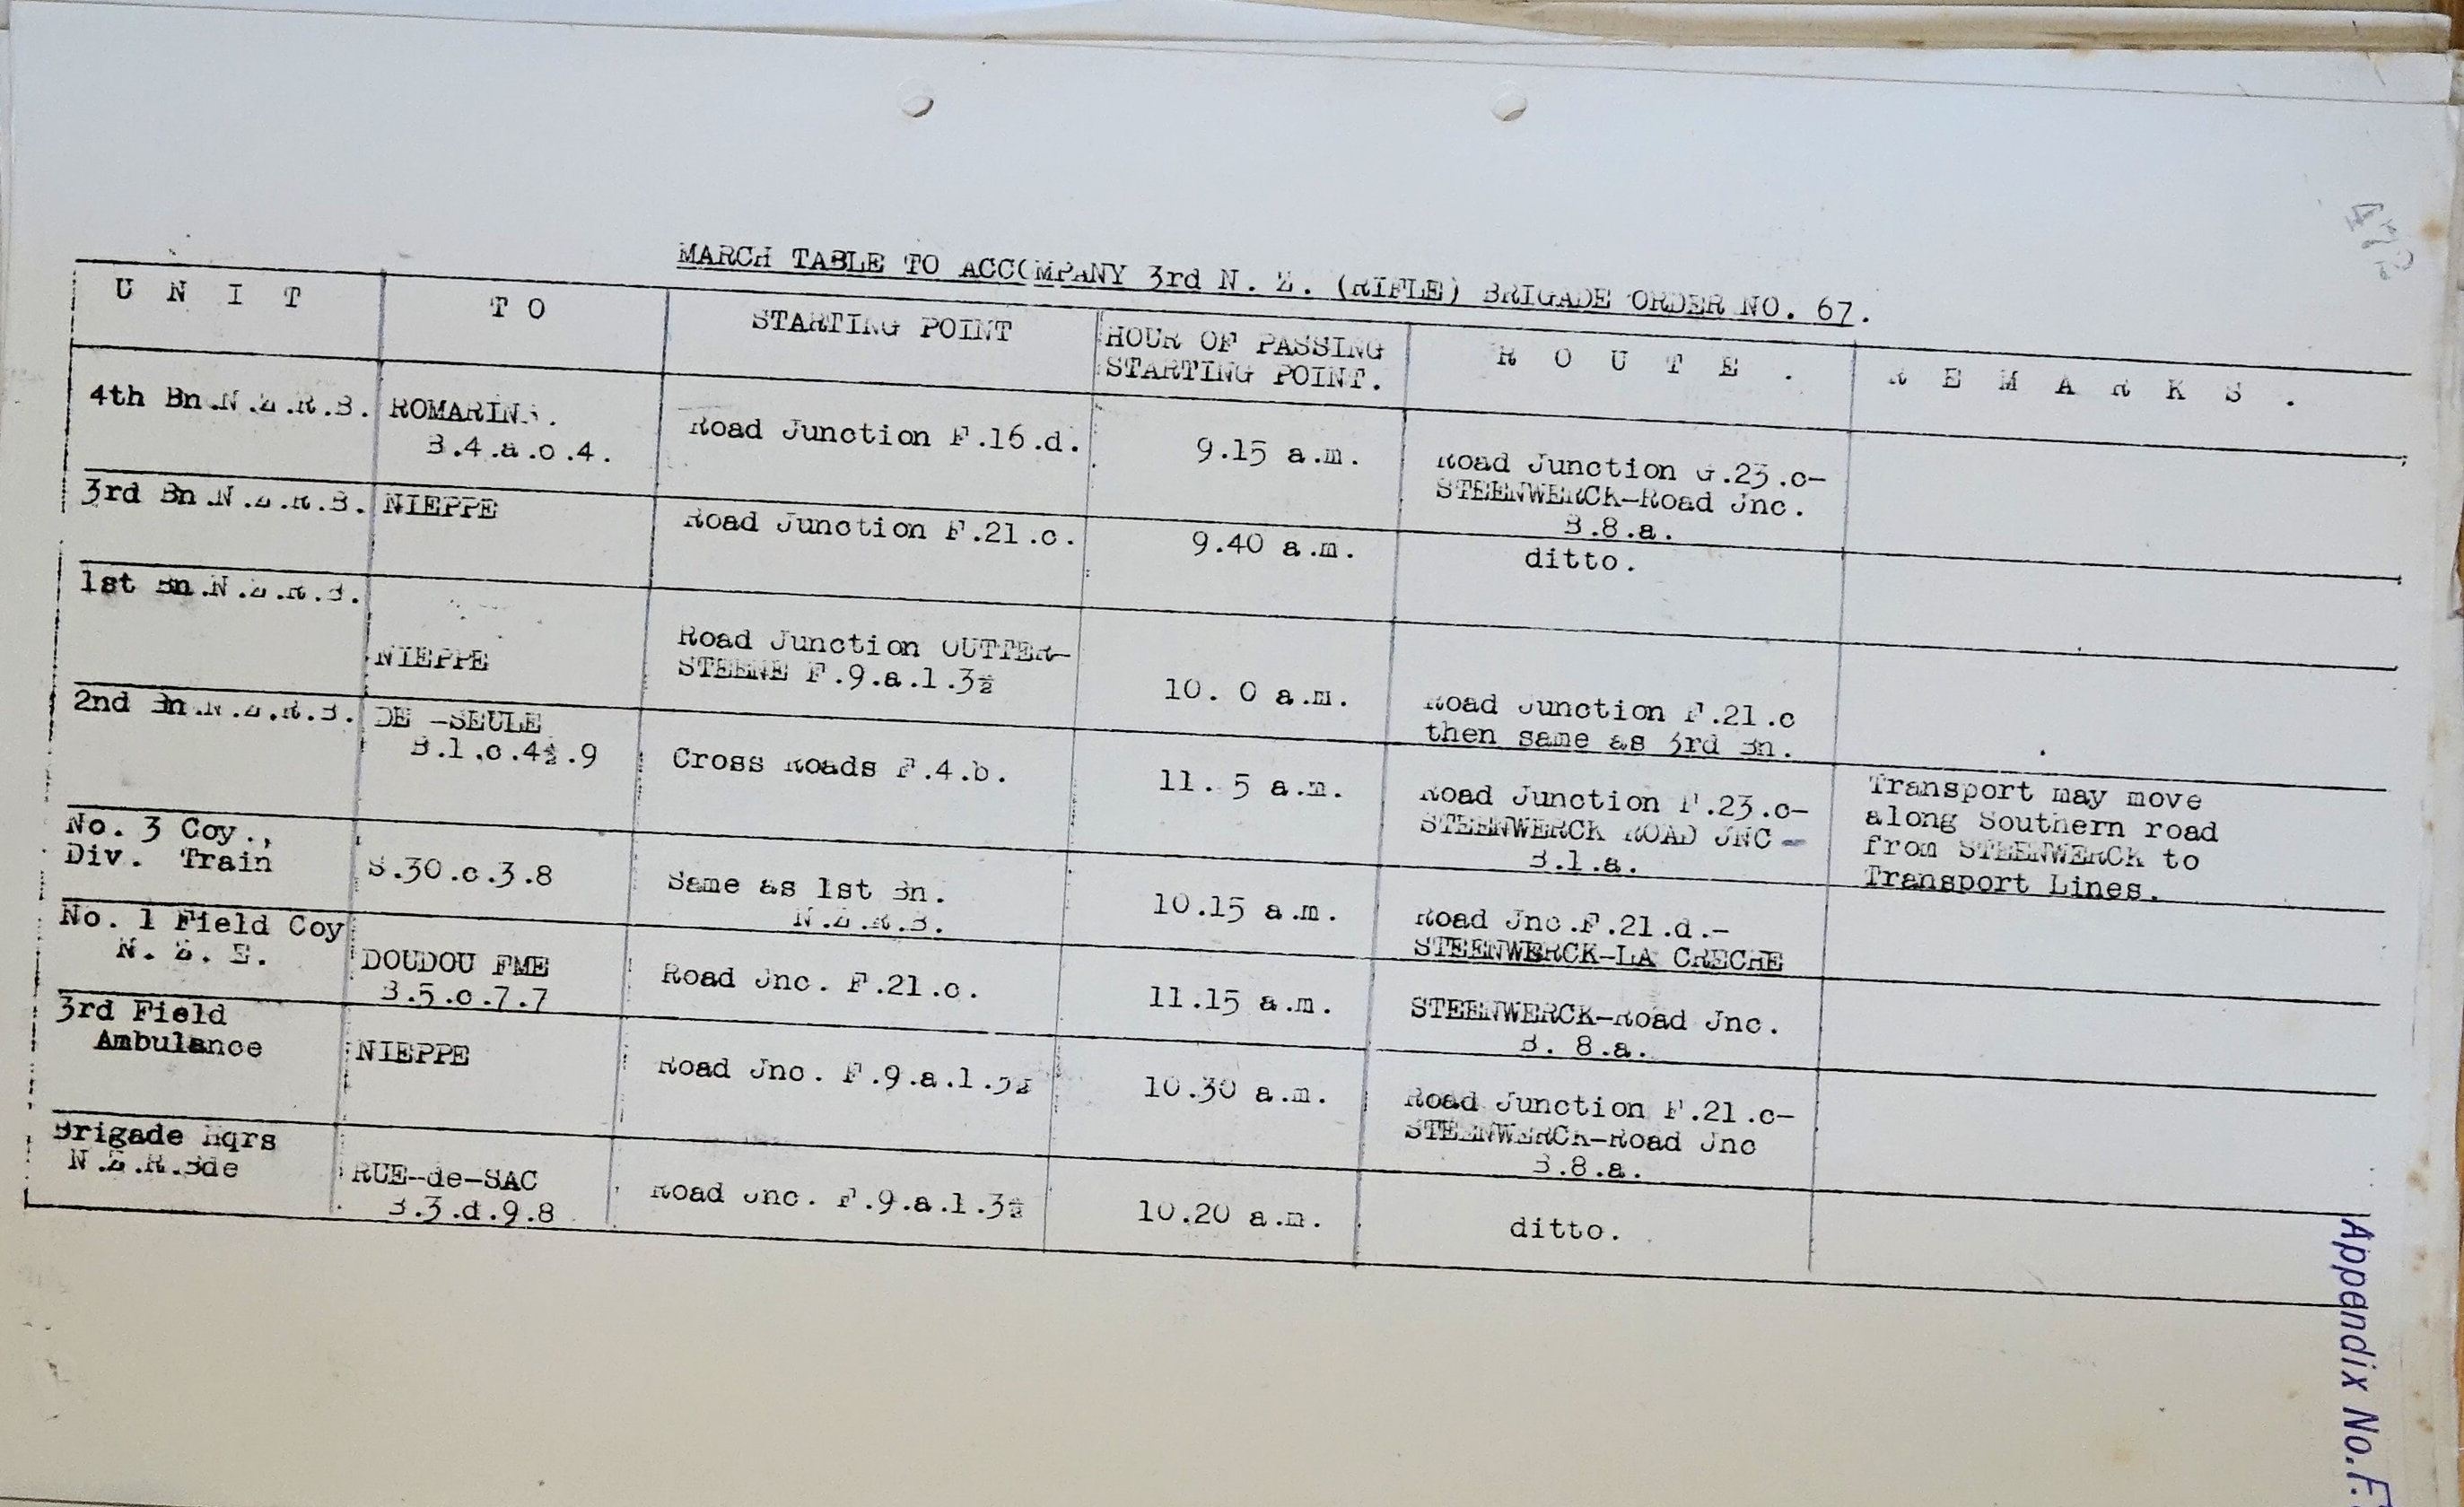 MARCH TABLE TO ACCOMPANY 3rd N. Z. (RIFLE) BRIGADE ORDER NO. 67.
U N I T
T O
STARTING POINT
HOUR OF PASSING
STARTING POINT.
R O U T E .
R E M A R K S .
4th Bn.N.Z.R.B.
ROMARIN.
B.4.a.o.4.
Road Junction F.16.d.
9.15 a.m.
Road Junction G.23.c-
STEENWERCK-Road Jnc.
B.8.a.
3rd Bn.N.Z.R.B.
NIEPPE
Road Junction F.21.c.
9.40 a.m.
ditto.
1st Bn.N.Z.R.B.
NIEPPE
Road Junction OUTTER-
STEENE F.9.a.1.3½
10. 0 a.m.
Road Junction F.21.c
then same as 3rd Bn.
2nd Bn.N.Z.R.B.
DE -SEULE
B.1.c.4½.9
Cross Roads F.4.b.
11. 5 a.m.
Road Junction F.23.c-
STEENWERCK ROAD JNC -
B.1.a.
Transport may move
along Southern road
from STEENWERCK to
Transport Lines.
No. 3 Coy.,
Div. Train
S.30.c.3.8
Same as 1st Bn.
N.Z.R.B.
10.15 a.m.
Road Jnc.F.21.d.-
STEENWERCK-LA CRECHE
No. 1 Field Coy
N. Z. E.
DOUDOU FME
B.5.c.7.7
Road Jnc. F.21.c.
11.15 a.m.
STEENWERCK-Road Jnc.
B. 8.a.
3rd Field
Ambulance
NIEPPE
Road Jnc. F.9.a.1.3½
10.30 a.m.
Road Junction F.21.c-
STEENWERCK-Road Jnc
B.8.a.
Brigade Hqrs
N.Z.R.Bde
RUE-de-SAC
B.3.d.9.8
Road Jnc. F.9.a.1.3½
10.20 a.m.
ditto.
Appendix No.